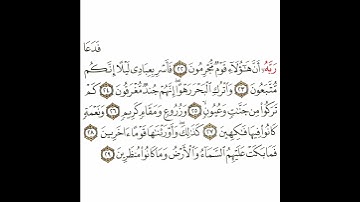 فَدَعَا
رَبَّهُۥٓ أَنَّ هَٰٓؤُلَآءِ قَوْمٌ مُّجْرِمُونَ ٢٢ فَأَسْرِ بِعِبَادِى لَيْلًا إِنَّكُم
مُّتَّبَعُونَ ٢٣ وَٱتْرُكِ ٱلْبَحْرَ رَهْوًا ۖ إِنَّهُمْ جُندٌ مُّغْرَقُونَ ٢٤ كَمْ
تَرَكُوا۟ مِن جَنَّٰتٍ وَعُيُونٍ ٢٥ وَزُرُوعٍ وَمَقَامٍ كَرِيمٍ ٢٦ وَنَعْمَةٍ
كَانُوا۟ فِيهَا فَٰكِهِينَ ٢٧ كَذَٰلِكَ ۖ وَأَوْرَثْنَٰهَا قَوْمًا ءَاخَرِينَ ٢٨
فَمَا بَكَتْ عَلَيْهِمُ ٱلسَّمَآءُ وَٱلْأَرْضُ وَمَا كَانُوا۟ مُنظَرِينَ ٢٩